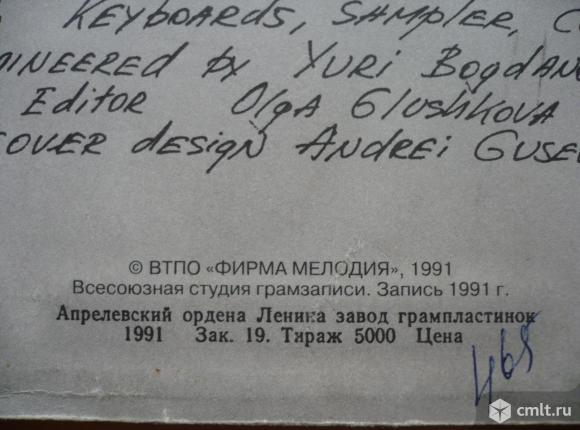 KEYBOARDS, SAMPLER, C
INEERED by YURI BOGDAN
Editor OLGA GLUSHKOVA
COVER design ANDREI GUSE
© ВТПО «ФИРМА МЕЛОДИЯ», 1991
Всесоюзная студия грамзаписи. Запись 1991 г.
Апрелевский ордена Ленина завод грампластинок
1991 Зак. 19. Тираж 5000 Цена
cmlt.ru